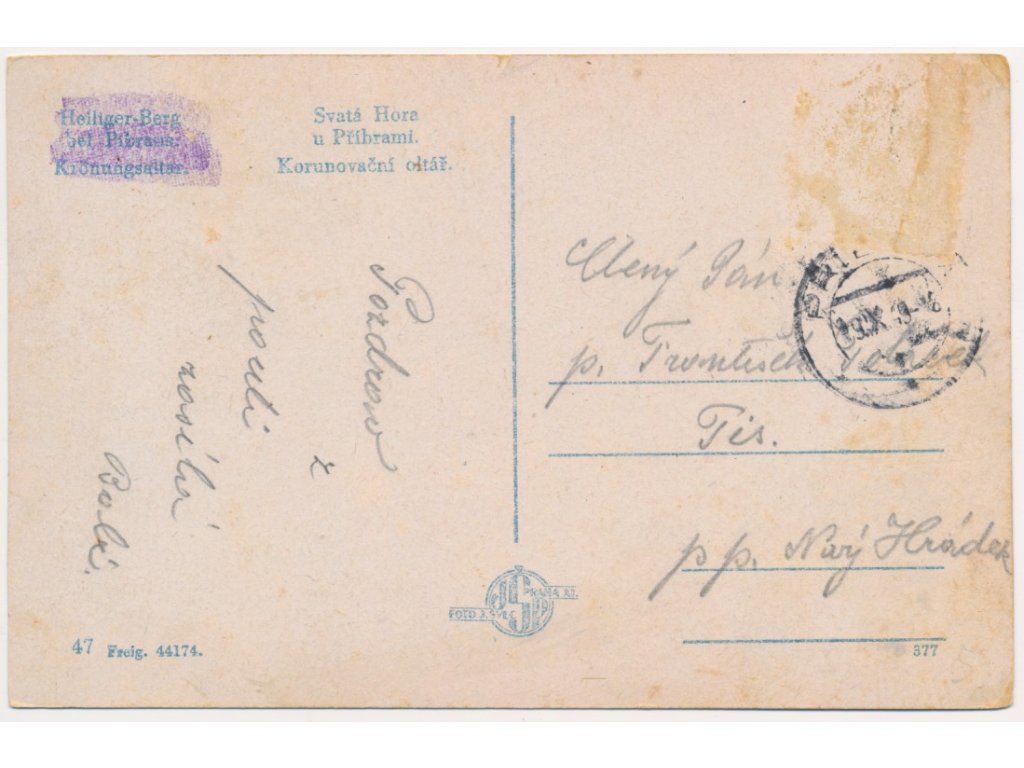 Heiliger-Berg
bei Pibrans.
Krönungsaltar.
Svatá Hora
u Příbrami.
Korunovační oltář.
Pozdrav
z
pouti
zasílá
Ctený Pán
p.
Tis.
p p. Nový Hrádek
FOTO J. ŠVEC PRAHA XI.
47 Freig. 44174.
377
5